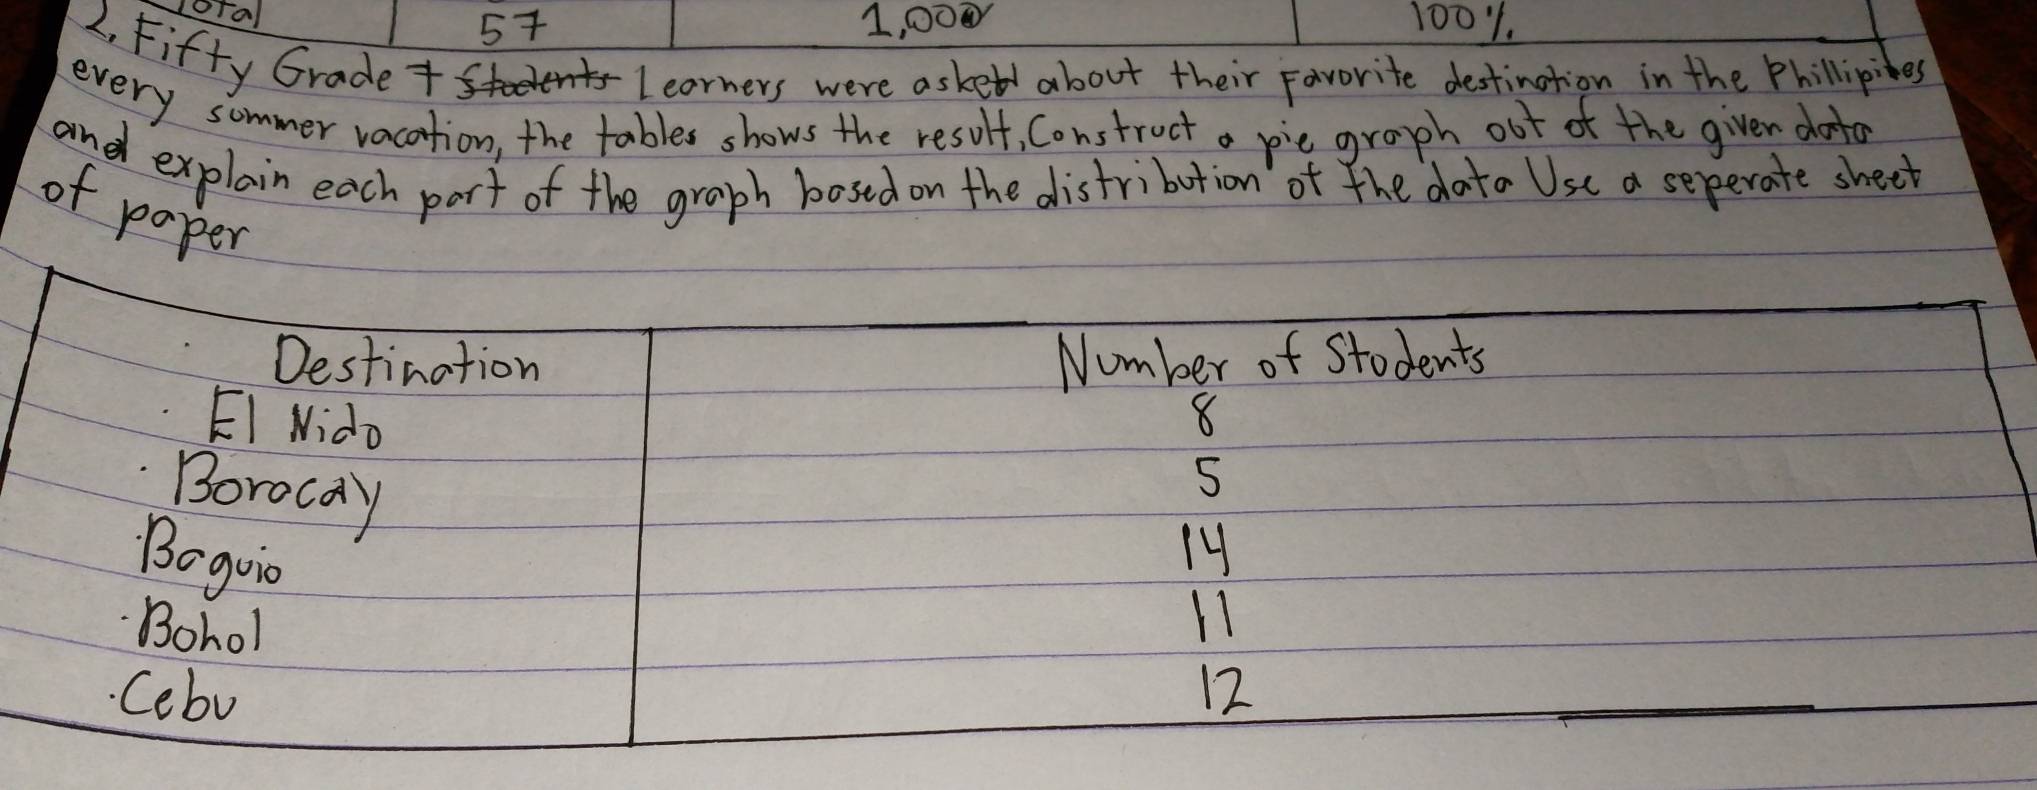 Total 57 1,000 100%
2. Fifty Grade 7 Learners were asked about their Favorite destination in the Phillipines
every summer vacation, the tables shows the result, Construct a pie graph out of the given data
and explain each part of the graph based on the distribution of the data Use a seperate sheet
of paper
Destination Number of Students
El Nido 8
Boracay 5
Baguio 14
Bohol 11
Cebu 12